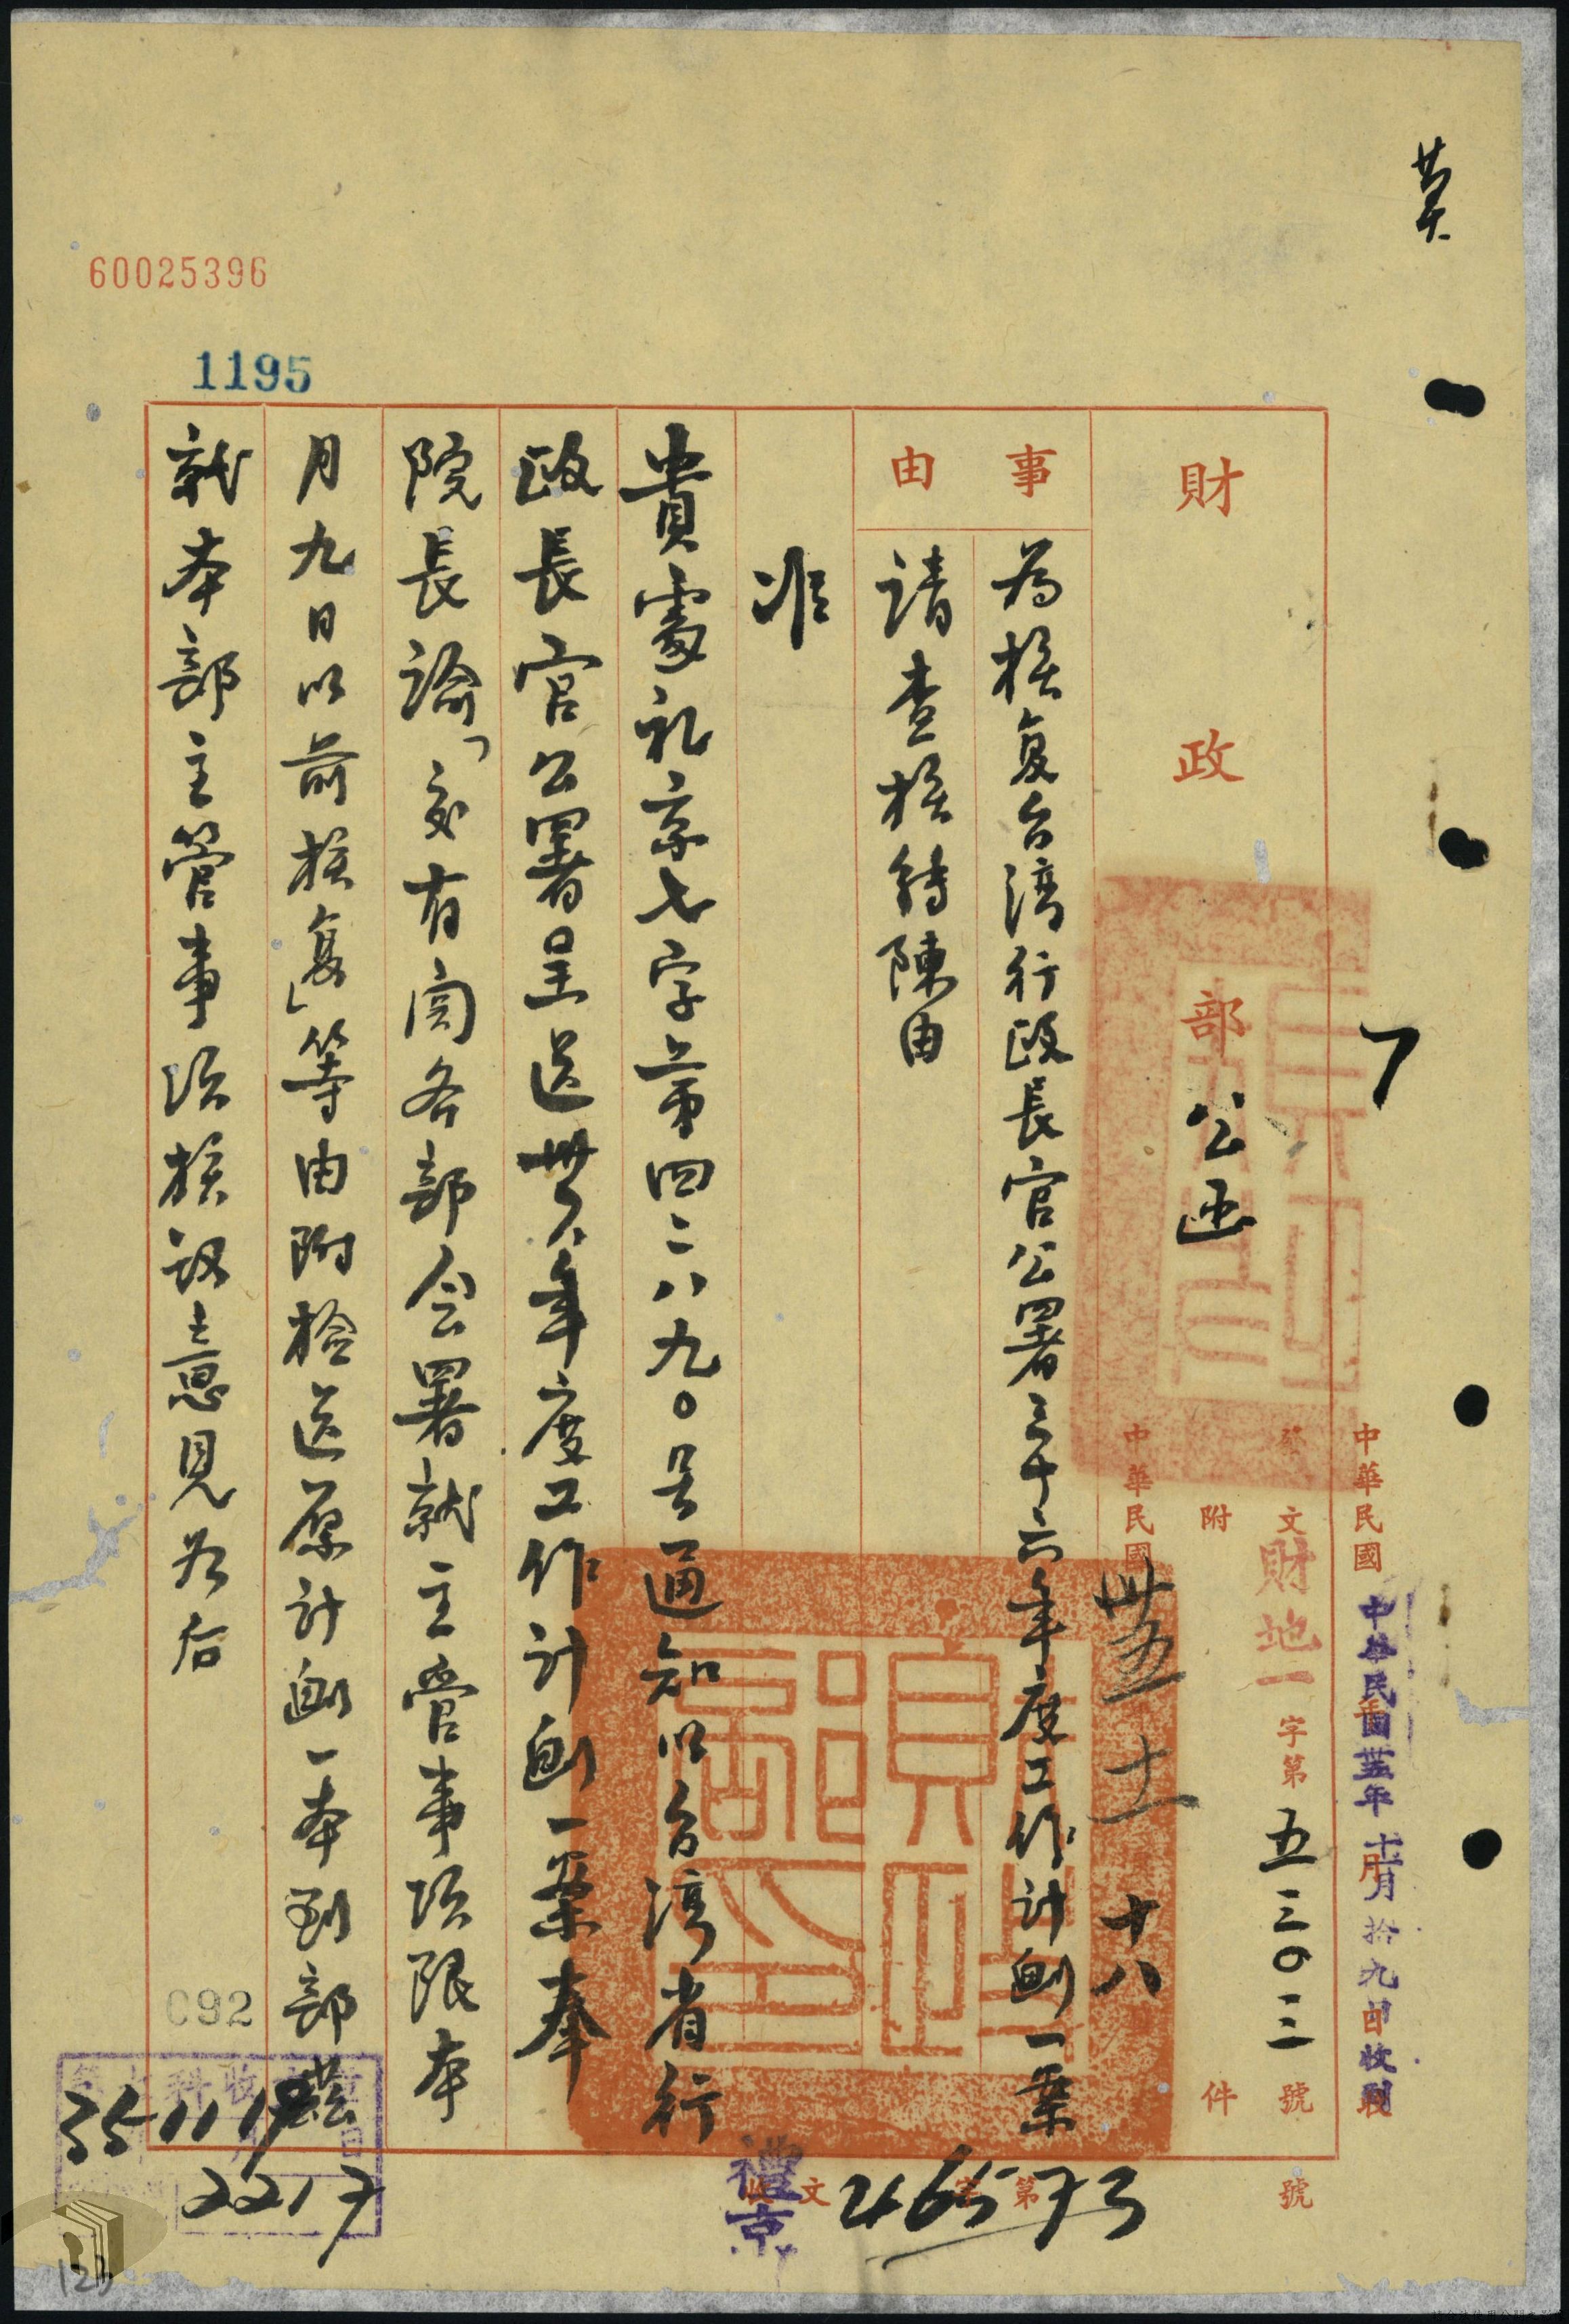 60025396
1195
7
財政部公函
中華民國
中華民國卅五年十一月拾九日收到
發文財地一字第五三〇三號
附件
中華民國卅五 十一 十八
事由
為核复台湾行政長官公署三十六年度工作計劃一案
請查核轉陳由
准
貴處礼京七字第四二八九〇号通知以台湾省行
政長官公署呈送卅六年度工作計劃一案奉
院長諭「交有関各部会署就主管事項限本
月九日以前核复」等由附檢送原計劃一本到部茲
就本部主管事項核议意見如后
092
35 11 19
2217
禮京
收文 字第 46573 號
123